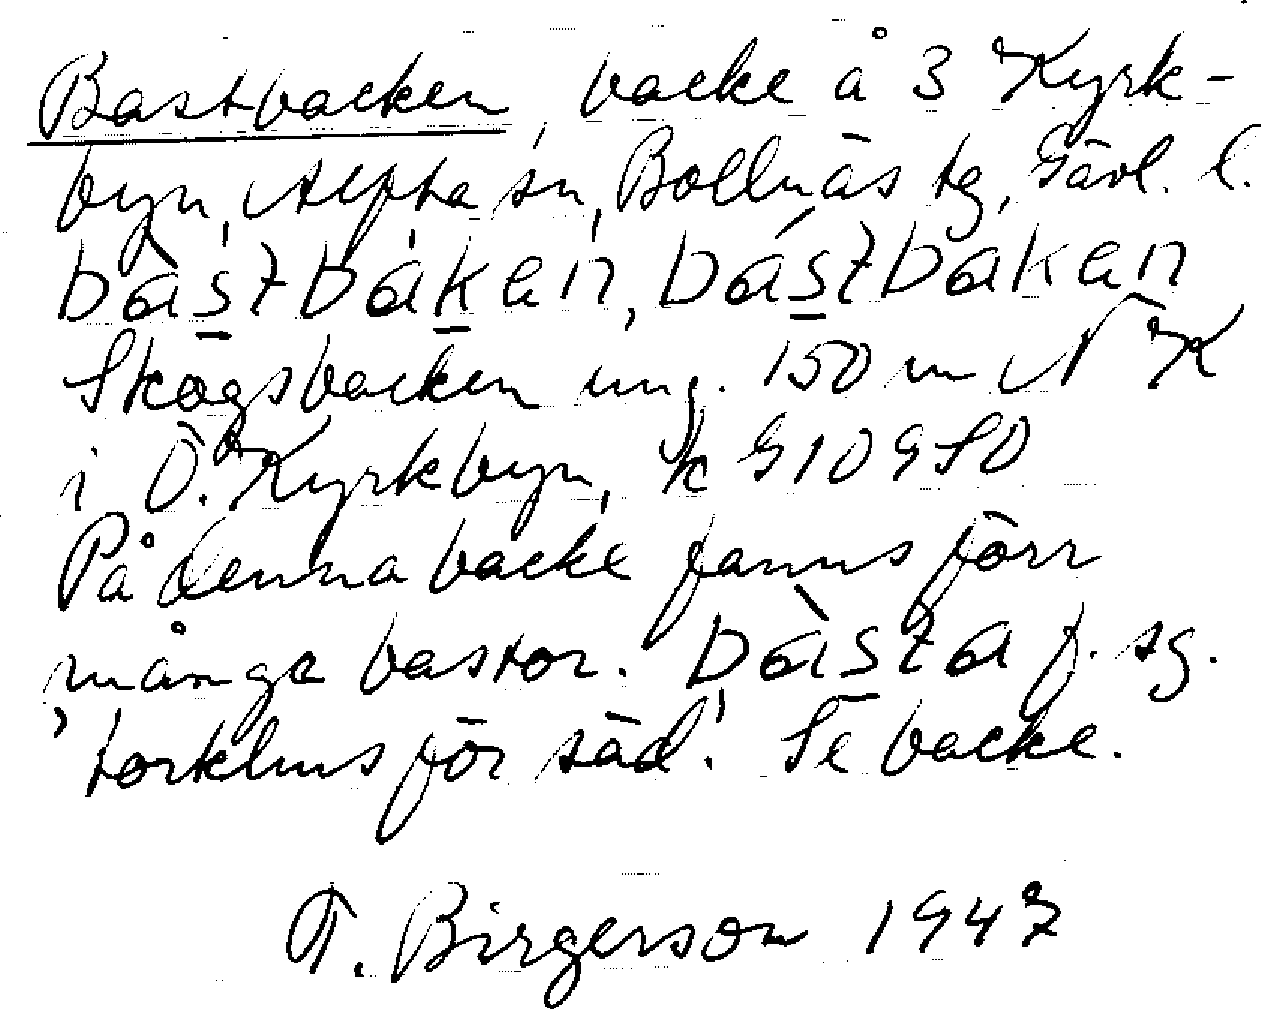 Bastbacken, backe å 3 Kyrk-
byn, Alfta sn, Bollnäs tg, Gävl. l.
bàstbákan, bástbàkan
Skogsbacken ung. 150 m N K
i Ö. Kyrkbyn, k G10 G50
På denna backe fanns förr
många bastor. bàsta f. sg.
'torkhus för säd'. Se backe.
F. Birgerson 1947